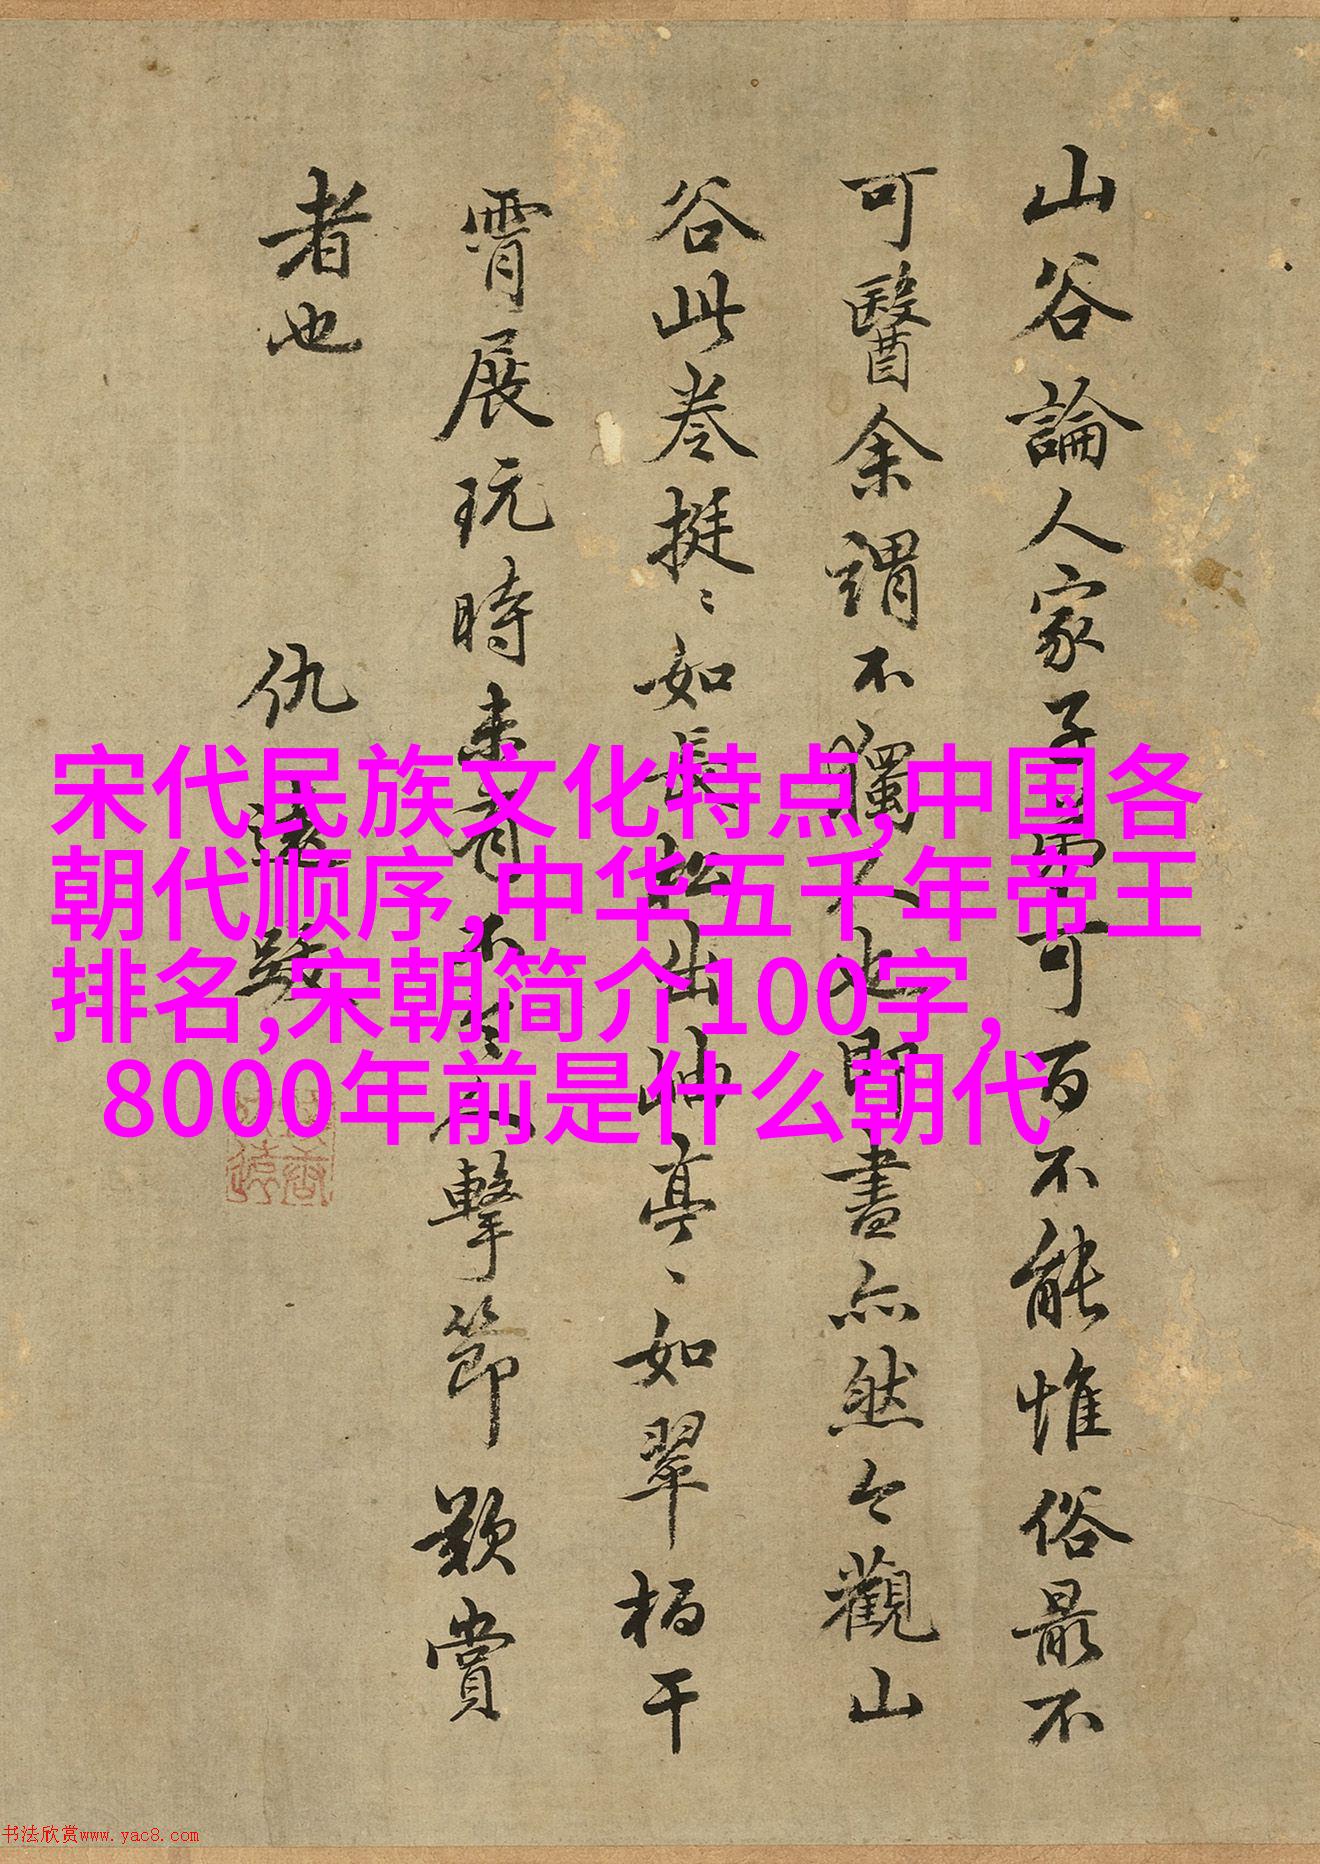 山谷論人家子弟可百不能惟俗最不
可醫余謂不獨人也即書亦然今觀山
谷此卷挺〻如長松出岫亭〻如翠栢干
霄展玩時未有不令人擊節歎賞
者也
仇遠跋
宋代民族文化特点,中国各
朝代顺序,中华五千年帝王
排名,宋朝简介100字,
8000年前是什么朝代
书法欣赏www.yac8.com